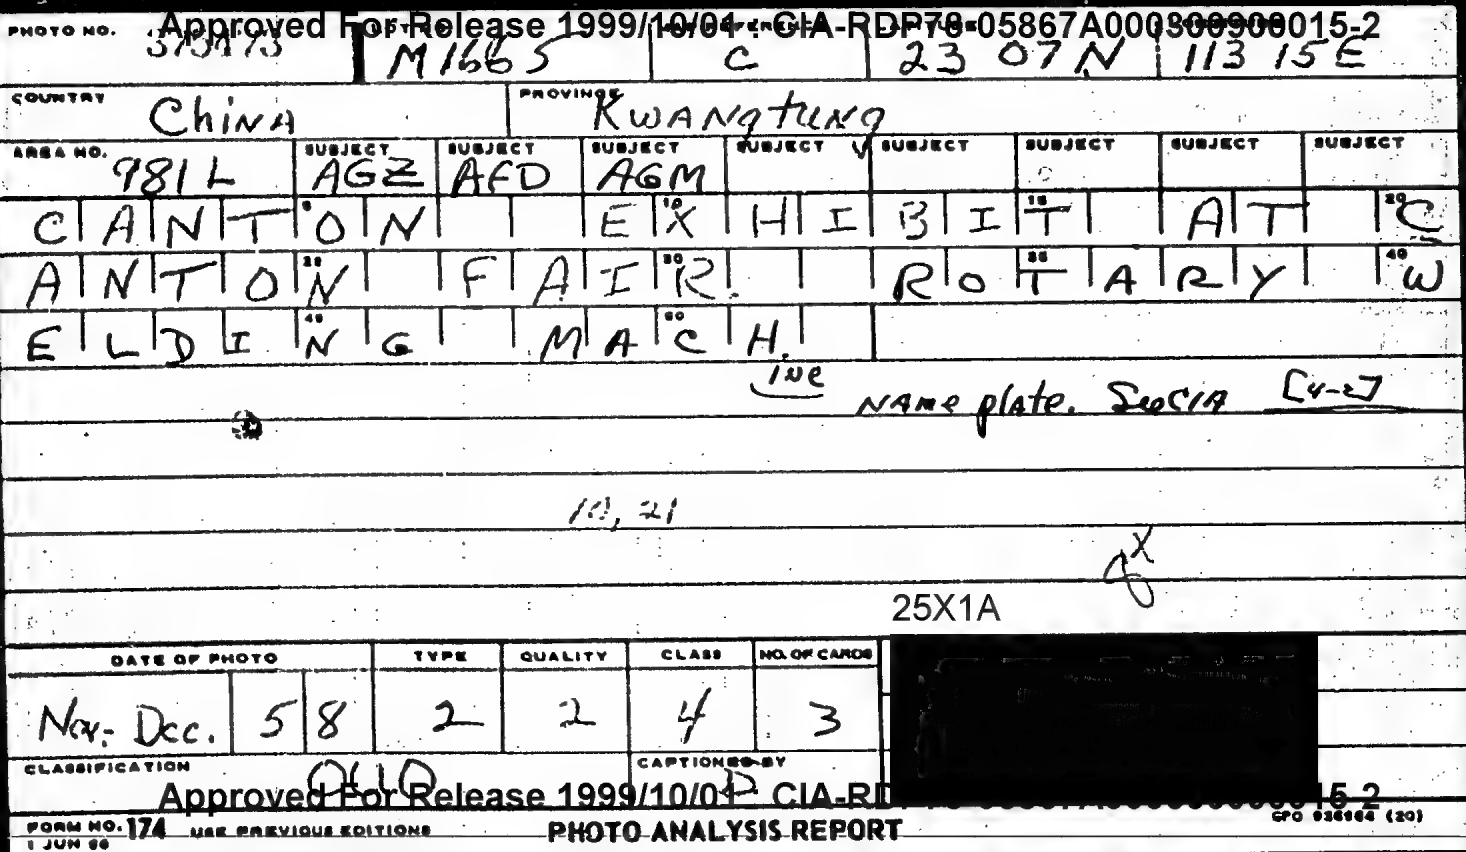 Approved For Release 1999/10/04 : CIA-RDP78-05867A000300900015-2
PHOTO NO. M1665 C 23 07 N 113 15 E
COUNTRY China PROVINCE Kwangtung
AREA NO. 981L SUBJECT AGZ SUBJECT AFD SUBJECT AGM SUBJECT SUBJECT SUBJECT SUBJECT SUBJECT
CANTON EXHIBIT AT C
ANTON FAIR. ROTARY W
ELDING MACH.
ine
Name plate. See CIA [4-2]
10, 21
X
25X1A
DATE OF PHOTO TYPE QUALITY CLASS NO. OF CARDS
Nov.- Dec. 58 2 2 4 3
CLASSIFICATION OUO CAPTIONED BY
Approved For Release 1999/10/04 : CIA-RD 15-2
FORM NO. 174 USE PREVIOUS EDITIONS PHOTO ANALYSIS REPORT GPO 936164 (20)
1 JUN